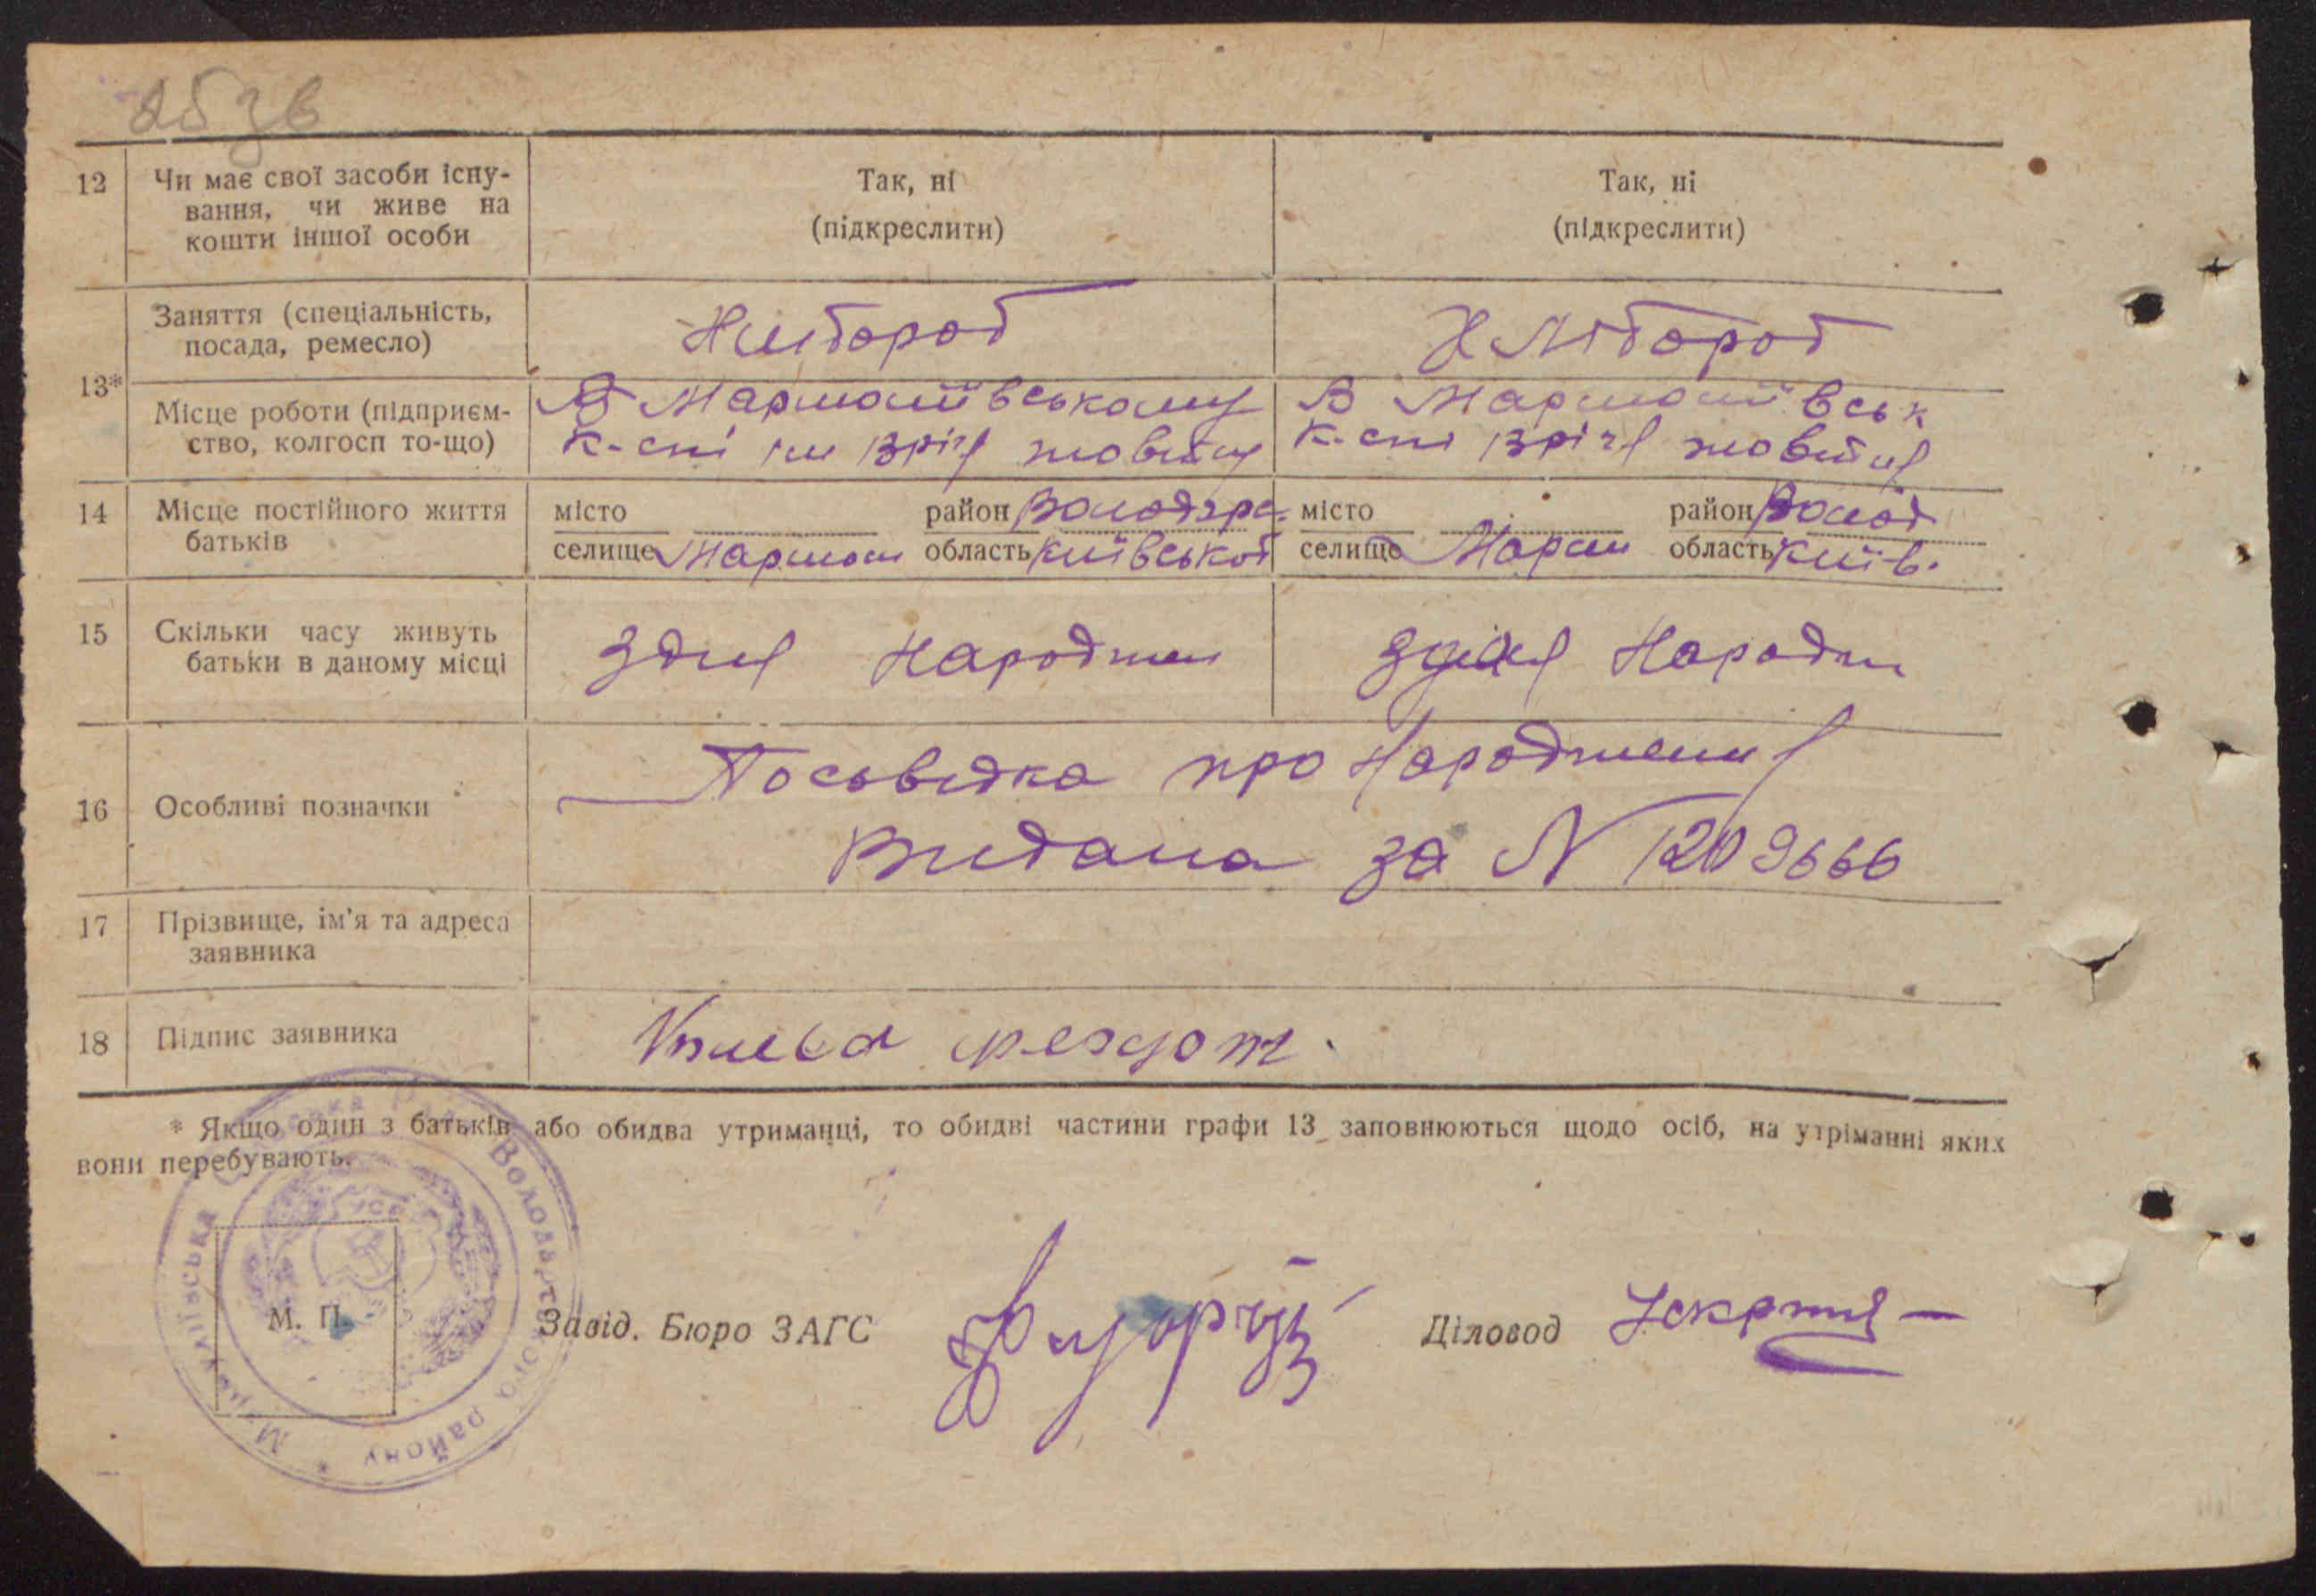 25зв
12 Чи має свої засоби існу-
вання, чи живе на
кошти іншої особи
Так, ні
(підкреслити)
Так, ні
(підкреслити)
13*
Заняття (спеціальність,
посада, ремесло)
Хлібороб
Хлібороб
Місце роботи (підприєм-
ство, колгосп то-що)
В
к-спі
жовтня
В
к-спі
жовтня
14 Місце постійного життя
батьків
місто район
селище область Київської
місто район Волод
селище область Київ.
15 Скільки часу живуть
батьки в даному місці
Здня Народжен
Здня Народж
16 Особливі позначки
Посьвідка про Народження
Видана за N 1209666
17 Прізвище, ім'я та адреса
заявника
18 Підпис заявника
* Якщо один з батьків або обидва утриманці, то обидві частини графи 13 заповнюються щодо осіб, на утріманні яких
вони перебувають.
району
М. П.
Завід. Бюро ЗАГС
Діловод